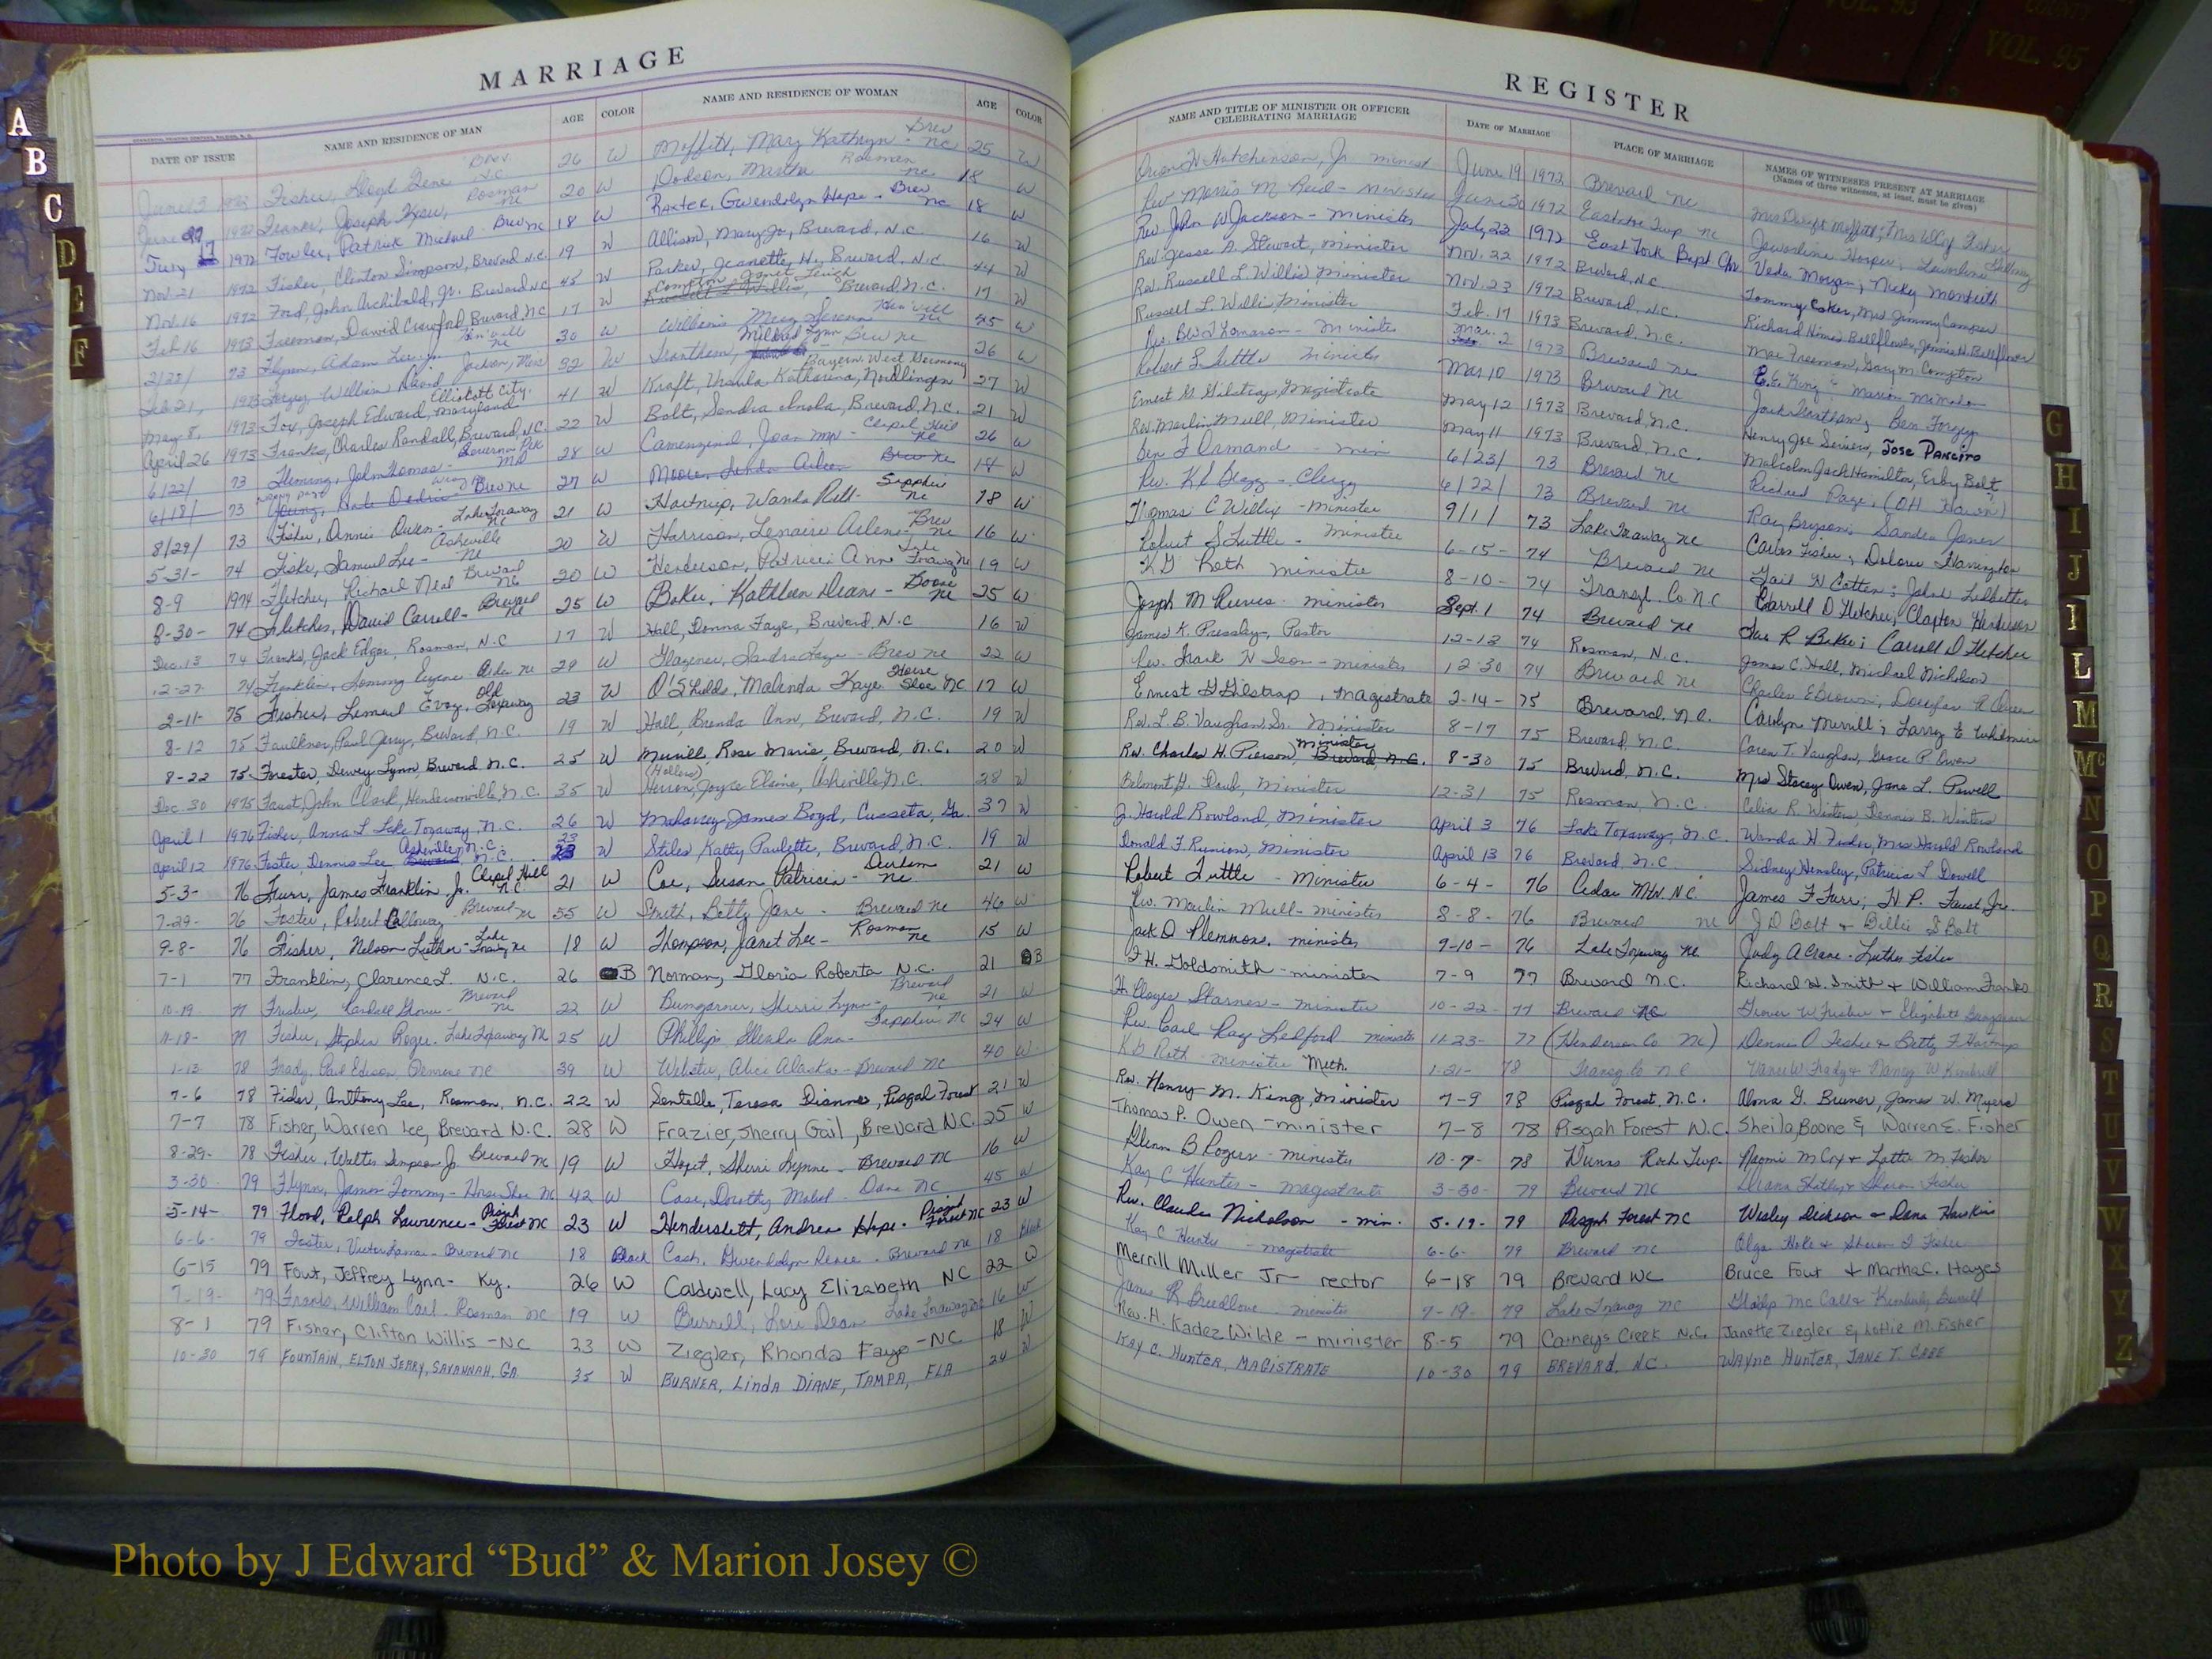 VOL. 93
COUNTY
VOL. 95
MARRIAGE
DATE OF ISSUE NAME AND RESIDENCE OF MAN AGE COLOR NAME AND RESIDENCE OF WOMAN AGE COLOR
June 13 1972 Fisher, Lloyd Gene Brev. N.C. 26 W Moffitt, Mary Kathryn - Brev NC 25 W
June 1972 Franks, Joseph Rosman NC 20 W Dodson, Martha Rosman NC 18 W
July 17 1972 Fowler, Patrick Michael - Brev NC 18 W Raxter, Gwendolyn Hope - Brev NC 18 W
Nov. 21 1972 Fisher, Clinton Simpson, Brevard N.C. 19 W Allison, Mary Jo, Brevard, N.C. 16 W
Nov. 16 1972 Ford, John Archibald, Jr. Brevard N.C. 45 W Parker, Jeanette H., Brevard, N.C. 44 W
Feb 16 1973 Freeman, David Crawford, Brevard, N.C. 17 W Compton Janet Leigh Brevard N.C. 17 W
2/28/ 73 Flynn, Adam Lee NC 30 W Williams Mary NC 45 W
Feb 21, 1973 William David, 32 W Mildred Lynn Brev NC 26 W
May 8, 1973 Fox, Joseph Edward, Ellicott City, Maryland 41 W Kraft, Ursula Katharina, Nordlingen Bayern, West Germany 27 W
April 26 1973 Franks, Charles Randall, Brevard, N.C. 22 W Bolt, Sandra Brevard, N.C. 21 W
6/22/ 73 Fleming, John Thomas - Severna Park Md 28 W Camenzind, Joan - Chapel Hill NC 26 W
6/18/ 73 wrong page Young, Brev NC 27 W Moore, Linda Brev NC 18 W
8/29/ 73 Fisher, Annis Owen - Lake Toxaway NC 21 W Hartnip, Wanda Sapphire NC 18 W
5-31- 74 Fiske, Samuel Lee - Asheville NC 20 W Harrison, Lenaire Arlene - Brev NC 16 W
8-9 1974 Fletcher, Richard Neal Brevard NC 20 W Henderson, Patricia Ann Lake Toxaway NC 19 W
8-30- 74 Fletcher, David Carroll - Brevard NC 25 W Baker, Kathleen Deane - Boone NC 25 W
Dec. 13 74 Franks, Jack Edgar, Rosman, N.C 17 W Hall, Donna Faye, Brevard, N.C 16 W
12-27 74 Franklin, Eugene NC 29 W Glazener, Sandra Faye - Brev NC 22 W
2-11- 75 Fisher, Lemuel Old Toxaway 23 W O'Shields, Malinda Kaye Horse Shoe NC 17 W
8-12 75 Faulkner, Paul Jerry, Brevard, N.C. 19 W Hall, Brenda Ann, Brevard, N.C. 19 W
8-22 75 Forester, Dewey Lynn, Brevard N.C. 25 W Merrill, Rose Marie, Brevard, N.C. 20 W
Dec. 30 1975 Faust, John Clark, Hendersonville, N.C. 35 W Herron, Joyce Elaine, Asheville N.C. 28 W
April 1 1976 Fisher, Anna L Lake Toxaway, N.C. 26 W Mahaney James Boyd, Cusseta, Ga. 37 W
April 12 1976 Foster, Dennis Lee Asheville, N.C. 23 W Stiles, Kathy Paulette, Brevard, N.C. 19 W
5-3- 76 Furr, James Franklin Jr. Chapel Hill N.C. 21 W Coe, Susan Patricia - Durham NC 21 W
7-29- 76 Foster, Robert Calloway - Brevard NC 55 W Smith, Betty Jane - Brevard NC 46 W
9-8- 76 Fisher, Nelson Luther - Lake Toxaway NC 18 W Thompson, Janet Lee - Rosman NC 15 W
7-1 77 Franklin, Clarence L. N.C. 26 B Norman, Gloria Roberta N.C. 21 B
10-19- 77 Brevard NC 22 W Bumgarner, Sherri Lynn - Brevard NC 21 W
11-18- 77 Fisher, Stephen Roger - Lake Toxaway NC 25 W Phillips Glenda Ann - Sapphire NC 24 W
1-13 78 Frady, Paul Edison, Penrose NC 39 W Webster, Alice Alaska - Brevard NC 40 W
7-6 78 Fisher, Anthony Lee, Rosman, N.C. 22 W Sentelle, Teresa Dianne, Pisgah Forest 21 W
7-7 78 Fisher, Warren Lee, Brevard N.C. 28 W Frazier, Sherry Gail, Brevard N.C. 25 W
8-29- 78 Fisher, Walter Simpson Jr Brevard NC 19 W Sherri Lynne - Brevard NC 16 W
3-30- 79 Flynn, James Tommy - Horse Shoe NC 42 W Case, Dorothy Mabel - Dana NC 45 W
5-14- 79 Flood, Ralph Lawrence - Pisgah Forest NC 23 W Andrea Hope - Pisgah Forest NC 23 W
6-6- 79 Foster, Victor Lamar - Brevard NC 18 Black Cash, Gwendolyn Renee - Brevard NC 18 Black
6-15 79 Fout, Jeffrey Lynn - Ky. 26 W Caldwell, Lacy Elizabeth NC 22 W
7-19- 79 Franks, William Carl - Rosman NC 19 W Burrell, Lori Dean Lake Toxaway NC 16 W
8-1 79 Fisher, Clifton Willis - NC 23 W Ziegler, Rhonda Faye - NC 18 W
10-30 79 Fountain, Elton Jerry, Savannah, GA. 35 W Burner, Linda Diane, Tampa, FLA 24 W
REGISTER
NAME AND TITLE OF MINISTER OR OFFICER CELEBRATING MARRIAGE DATE OF MARRIAGE PLACE OF MARRIAGE NAMES OF WITNESSES PRESENT AT MARRIAGE
(Names of three witnesses, at least, must be given)
Orion N Hutchinson, Jr. minist June 19 1972 Brevard NC
Rev Morris M Reid - Minister June 30 1972 Eastatoe Twp NC
Rev. John W Jackson - Minister July 22 1972 East Fork Bapt Ch.
Rev. Jesse A. Stewart, Minister Nov. 22 1972 Brevard, N.C. Veda Morgan, Nicky Monteith
Rev. Russell L Willis, Minister Nov. 23 1972 Brevard, N.C. Tommy Coker, Mrs Jimmy Camper
Russell L. Willis Minister Feb. 17 1973 Brevard, N.C. Richard Hines Bellflower, Jennie H. Bellflower
Rev. Thomason - Minister Mar. 2 1973 Brevard NC Mae Freeman, Gary M. Compton
Robert L Tuttle Minister Mar 10 1973 Brevard NC
Ernest G Gilstrap, Magistrate May 12 1973 Brevard, N.C.
Rev. Marlin Mull Minister May 11 1973 Brevard, N.C. Jose Panceiro
Ben F Ormand min 6/23/ 73 Brevard NC Malcolm Jack Hamilton, Erby Bolt
Rev. K S Begg - Clergy 6/22/ 73 Brevard NC Richard Page,
Thomas C Willis - minister 9/1/ 73 Lake Toxaway NC Ray Bryson, Sandra Jones
Robert S Tuttle - Minister 6-15- 74 Brevard NC Carlos Fisher, Dolores
K G Roth Minister 8-10- 74 Transyl. Co. N.C Gail H Cotten; John Ledbetter
Joseph M Reeves Minister Sept. 1 74 Brevard NC Carroll D Fletcher; Clayton Henderson
James K. Pressley, Pastor 12-13 74 Rosman, N.C. R Baker; Carroll D Fletcher
Rev. Frank N Ison - minister 12-30 74 Brevard NC James C. Hall, Michael Nicholson
Ernest G Gilstrap, Magistrate 2-14- 75 Brevard, N.C. Charles E Brown; Douglas
Rev. L. B. Vaughn, Sr. Minister 8-17 75 Brevard, N.C. Carolyn Merrill; Larry E Whitmire
Rev. Charles H. Pierson, Minister 8-30 75 Brevard, N.C. Caren T. Vaughn, Grace P. Owen
Belmont H. Daub, Minister 12-31 75 Rosman, N.C. Mrs Stacey Owen, Jane L. Powell
J. Harold Rowland, Minister April 3 76 Lake Toxaway, N.C. Celia R. Winters, Dennis B. Winters
Donald F. Runion, Minister April 13 76 Brevard N.C Wanda H Fisher, Mrs Harold Rowland
Robert Tuttle - Minister 6-4- 76 Cedar Mtn. N.C. Sidney Hensley, Patricia L Dowell
Rev. Marlin Mull - minister 8-8- 76 Brevard NC James F Furr; H P. Faust, Jr.
Jack D Plemmons, minister 9-10- 76 Lake Toxaway NC J D Bolt & Billie S Bolt
F H. Goldsmith - minister 7-9 77 Brevard N.C. Judy A Crane - Luther Fisher
H. Cloyes Starnes - minister 10-22- 77 Brevard NC Richard H. Smith & William Franks
Rev. Carl Ray Ledford minister 11-23- 77 (Henderson Co NC) Dennis O Fisher & Betty F
K G Roth - minister Meth. 1-21- 78 Transy. Co NC Vance W Frady & Nancy W Kimbrell
Rev. Henry M. King, Minister 7-9 78 Pisgah Forest, N.C. Alma G. Bruner, James W. Myers
Thomas P. Owen - minister 7-8 78 Pisgah Forest N.C. Sheila Boone & Warren E. Fisher
Glenn B Rogers - minister 10-7- 78 Dunns Rock Twp. Naomi McCoy & Lotta M Fisher
Kay C Hunter - magistrate 3-30- 79 Brevard NC
Rev. Claude Nicholson - min. 5-19- 79 Pisgah Forest NC Wesley Dickson & Dana Hawkins
Kay C Hunter - magistrate 6-6- 79 Brevard NC
Merrill Miller Jr - rector 6-18 79 Brevard NC Bruce Fout & Martha C. Hayes
James R Breedlove minister 7-19- 79 Lake Toxaway NC Gladys McCall & Kimberly Burrell
Rev. H. Kadez Wilde - minister 8-5 79 Carneys Creek N.C. Janette Ziegler & Lottie M. Fisher
Kay C. Hunter, Magistrate 10-30 79 Brevard, NC. Wayne Hunter, Jane T. Cobe
A
B
C
D
E
F
G
H
I
J
L
M
Mc
N
O
P
Q
R
S
T
U
V
W
X
Y
Z
Photo by J Edward “Bud” & Marion Josey ©